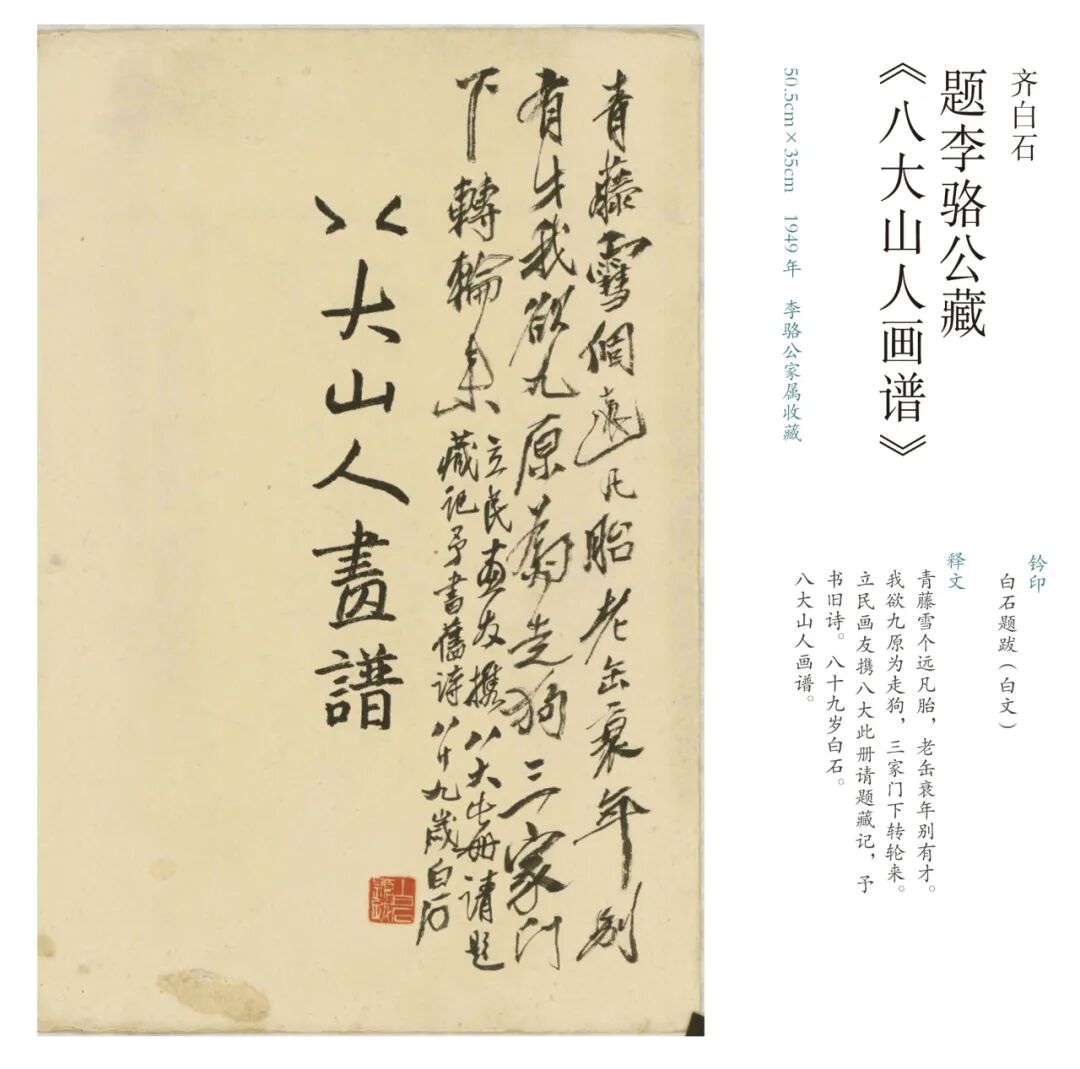 齐白石
题李骆公藏
《八大山人画谱》
50.5cm×35cm 1949年 李骆公家属收藏
钤印
白石题跋（白文）
释文
青藤雪个远凡胎，老缶衰年别有才。
我欲九原为走狗，三家门下转轮来。
立民画友携八大此册请题藏记，予
书旧诗。八十九岁白石。
八大山人画谱。
青藤雪個遠凡胎老缶衰年别
有才我欲九原為走狗三家门
下轉輪来
立民画友携八大此册请题
藏记予書舊诗八十九歲白石
八大山人畫譜